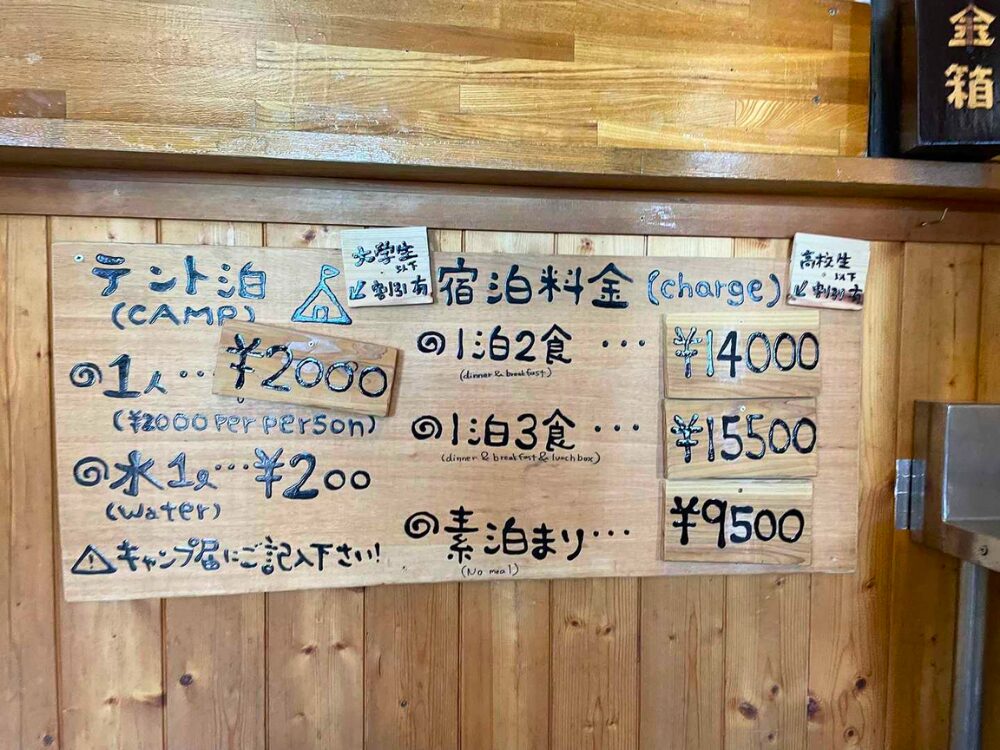 金
箱
テント泊
(CAMP)
大学生
以下
↙割引有
◎1人…¥2000
(¥2000 per person)
◎水1ℓ…¥200
(water)
⚠キャンプ届にご記入下さい!
宿泊料金(charge)
高校生
以下
↙割引有
◎1泊2食…¥14000
(dinner & breakfast)
◎1泊3食…¥15500
(dinner & breakfast & lunchbox)
◎素泊まり…¥9500
(No meal)